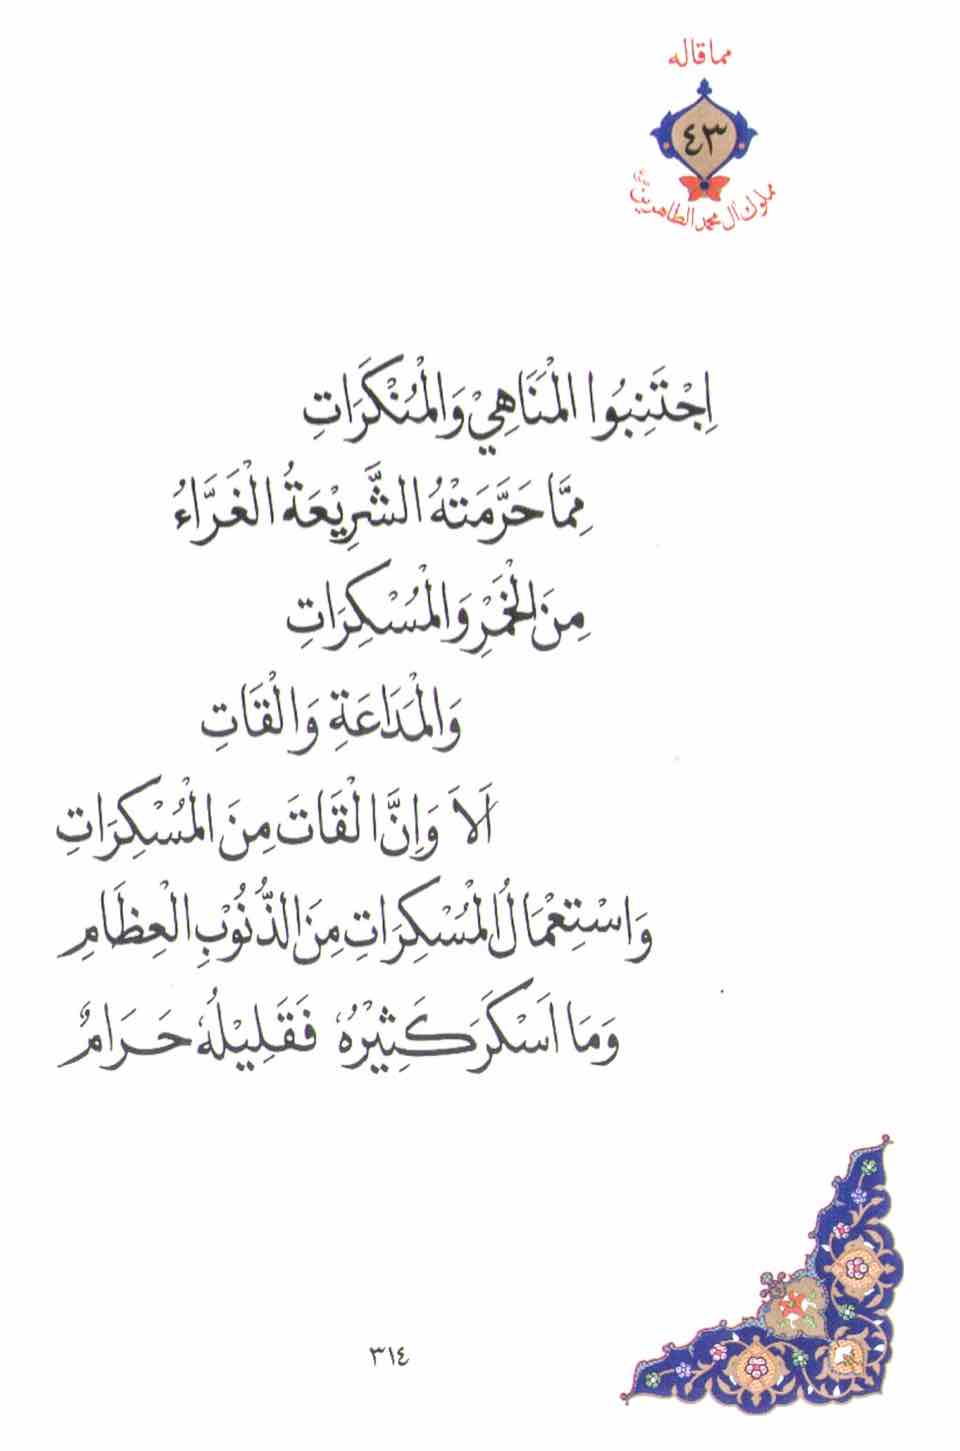 مما قاله
٤٣
مملوك آل محمد الطاهرين
اِجْتَنِبُوا الْمَنَاهِيْ وَالْمُنْكَرَاتِ
مِمَّا حَرَّمَتْهُ الشَّرِيْعَةُ الْغَرَّاءُ
مِنَ الْخَمْرِ وَالْمُسْكِرَاتِ
وَالْمَدَاعَةِ وَالْقَاتِ
اَلَا وَاِنَّ الْقَاتَ مِنَ الْمُسْكِرَاتِ
وَاسْتِعْمَالُ الْمُسْكِرَاتِ مِنَ الذُّنُوْبِ الْعِظَامِ
وَمَا اَسْكَرَ كَثِيْرُهُ فَقَلِيْلُهُ حَرَامٌ
٣١٤